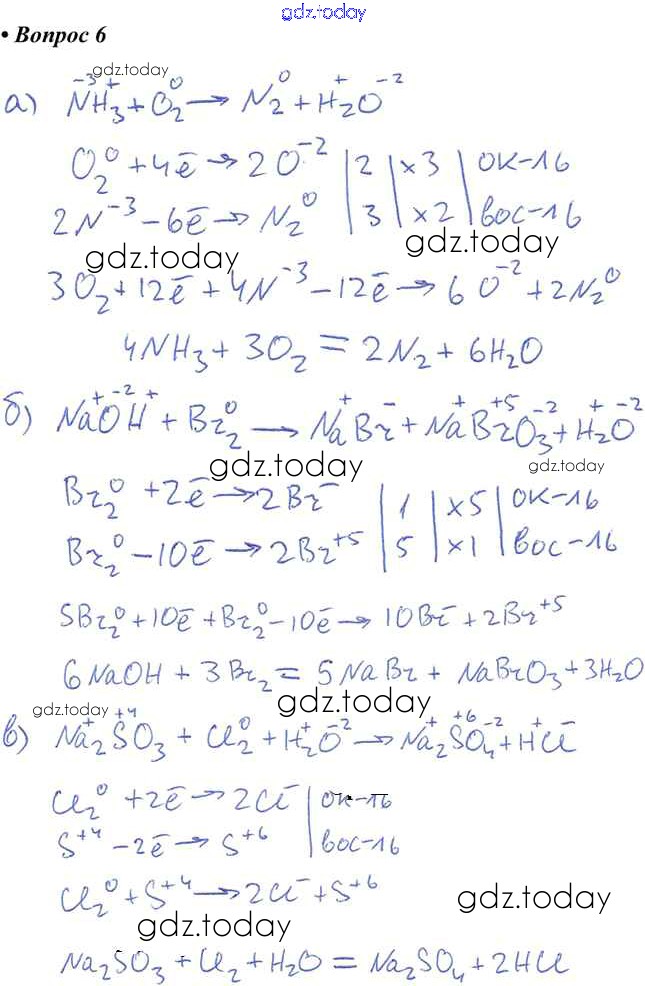 gdz.today
• Вопрос 6
gdz.today
а) N⁻³H⁺₃ + O⁰₂ → N⁰₂ + H⁺₂O⁻²
O₂⁰ + 4ē → 2O⁻² | 2 | x3 | ок-ль
2N⁻³ - 6ē → N₂⁰ | 3 | x2 | вос-ль
gdz.today gdz.today
3O₂ + 12ē + 4N⁻³ - 12ē → 6O⁻² + 2N₂⁰
4NH₃ + 3O₂ = 2N₂ + 6H₂O
б) Na⁺O⁻²H⁺ + Br₂⁰ → Na⁺Br⁻ + Na⁺Br⁺⁵O₃⁻² + H₂⁺O⁻²
gdz.today gdz.today
Br₂⁰ + 2ē → 2Br⁻ | 1 | x5 | ок-ль
Br₂⁰ - 10ē → 2Br⁺⁵ | 5 | x1 | вос-ль
5Br₂⁰ + 10ē + Br₂⁰ - 10ē → 10Br⁻ + 2Br⁺⁵
6NaOH + 3Br₂ = 5NaBr + NaBrO₃ + 3H₂O
gdz.today gdz.today
в) Na⁺₂S⁺⁴O₃ + Cl₂⁰ + H₂⁺O⁻² → Na₂⁺S⁺⁶O₄⁻² + H⁺Cl⁻
Cl₂⁰ + 2ē → 2Cl⁻ | ок-ль
S⁺⁴ - 2ē → S⁺⁶ | вос-ль
Cl₂⁰ + S⁺⁴ → 2Cl⁻ + S⁺⁶
gdz.today gdz.today
Na₂SO₃ + Cl₂ + H₂O = Na₂SO₄ + 2HCl